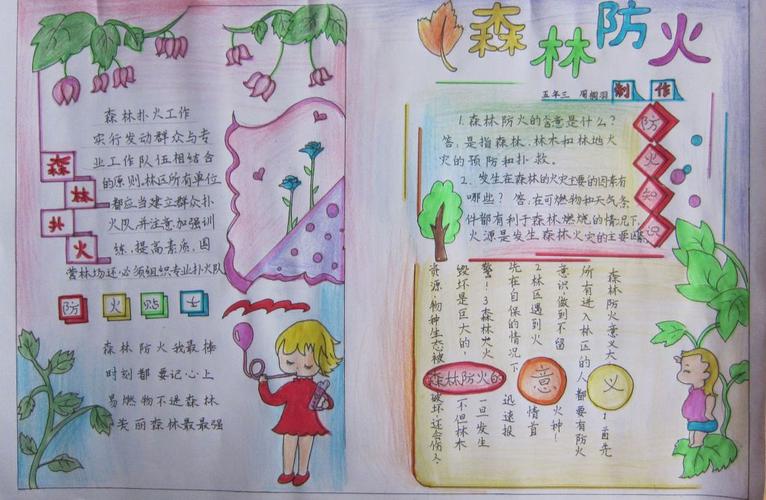 森林扑火工作
实行发动群众与专
业工作队伍相结合
的原则,林区所有单位
都应当建立群众扑
火队,并注意加强训
练,提高素质,国
营林场还必须组织专业扑火队
森
林
扑
火
防
火
贴
士
森林防火我最棒
时刻都要记心上
易燃物不进森林
美丽森林最最强
森林防火
五年三
制作
1.森林防火的含意是什么?
答,是指森林、林木和林地火
灾的预防和扑救。
2、发生在森林的火灾主要的因素有
哪些?答,在可燃物和天气条
件都有利于森林燃烧的情况下,
火源是发生森林火灾的主要因
防
火
知
识
森林防火意义大
1首先
所有进入林区的人都要有防火
意识,做到不留
火种!
2林区遇到火
情首
先在自保的情况下
迅速报
警!3森林火火
一旦发生
毁坏是巨大的,
不但林木
资源,物种生态被
破坏,还会伤人.
森林防火的
意
义